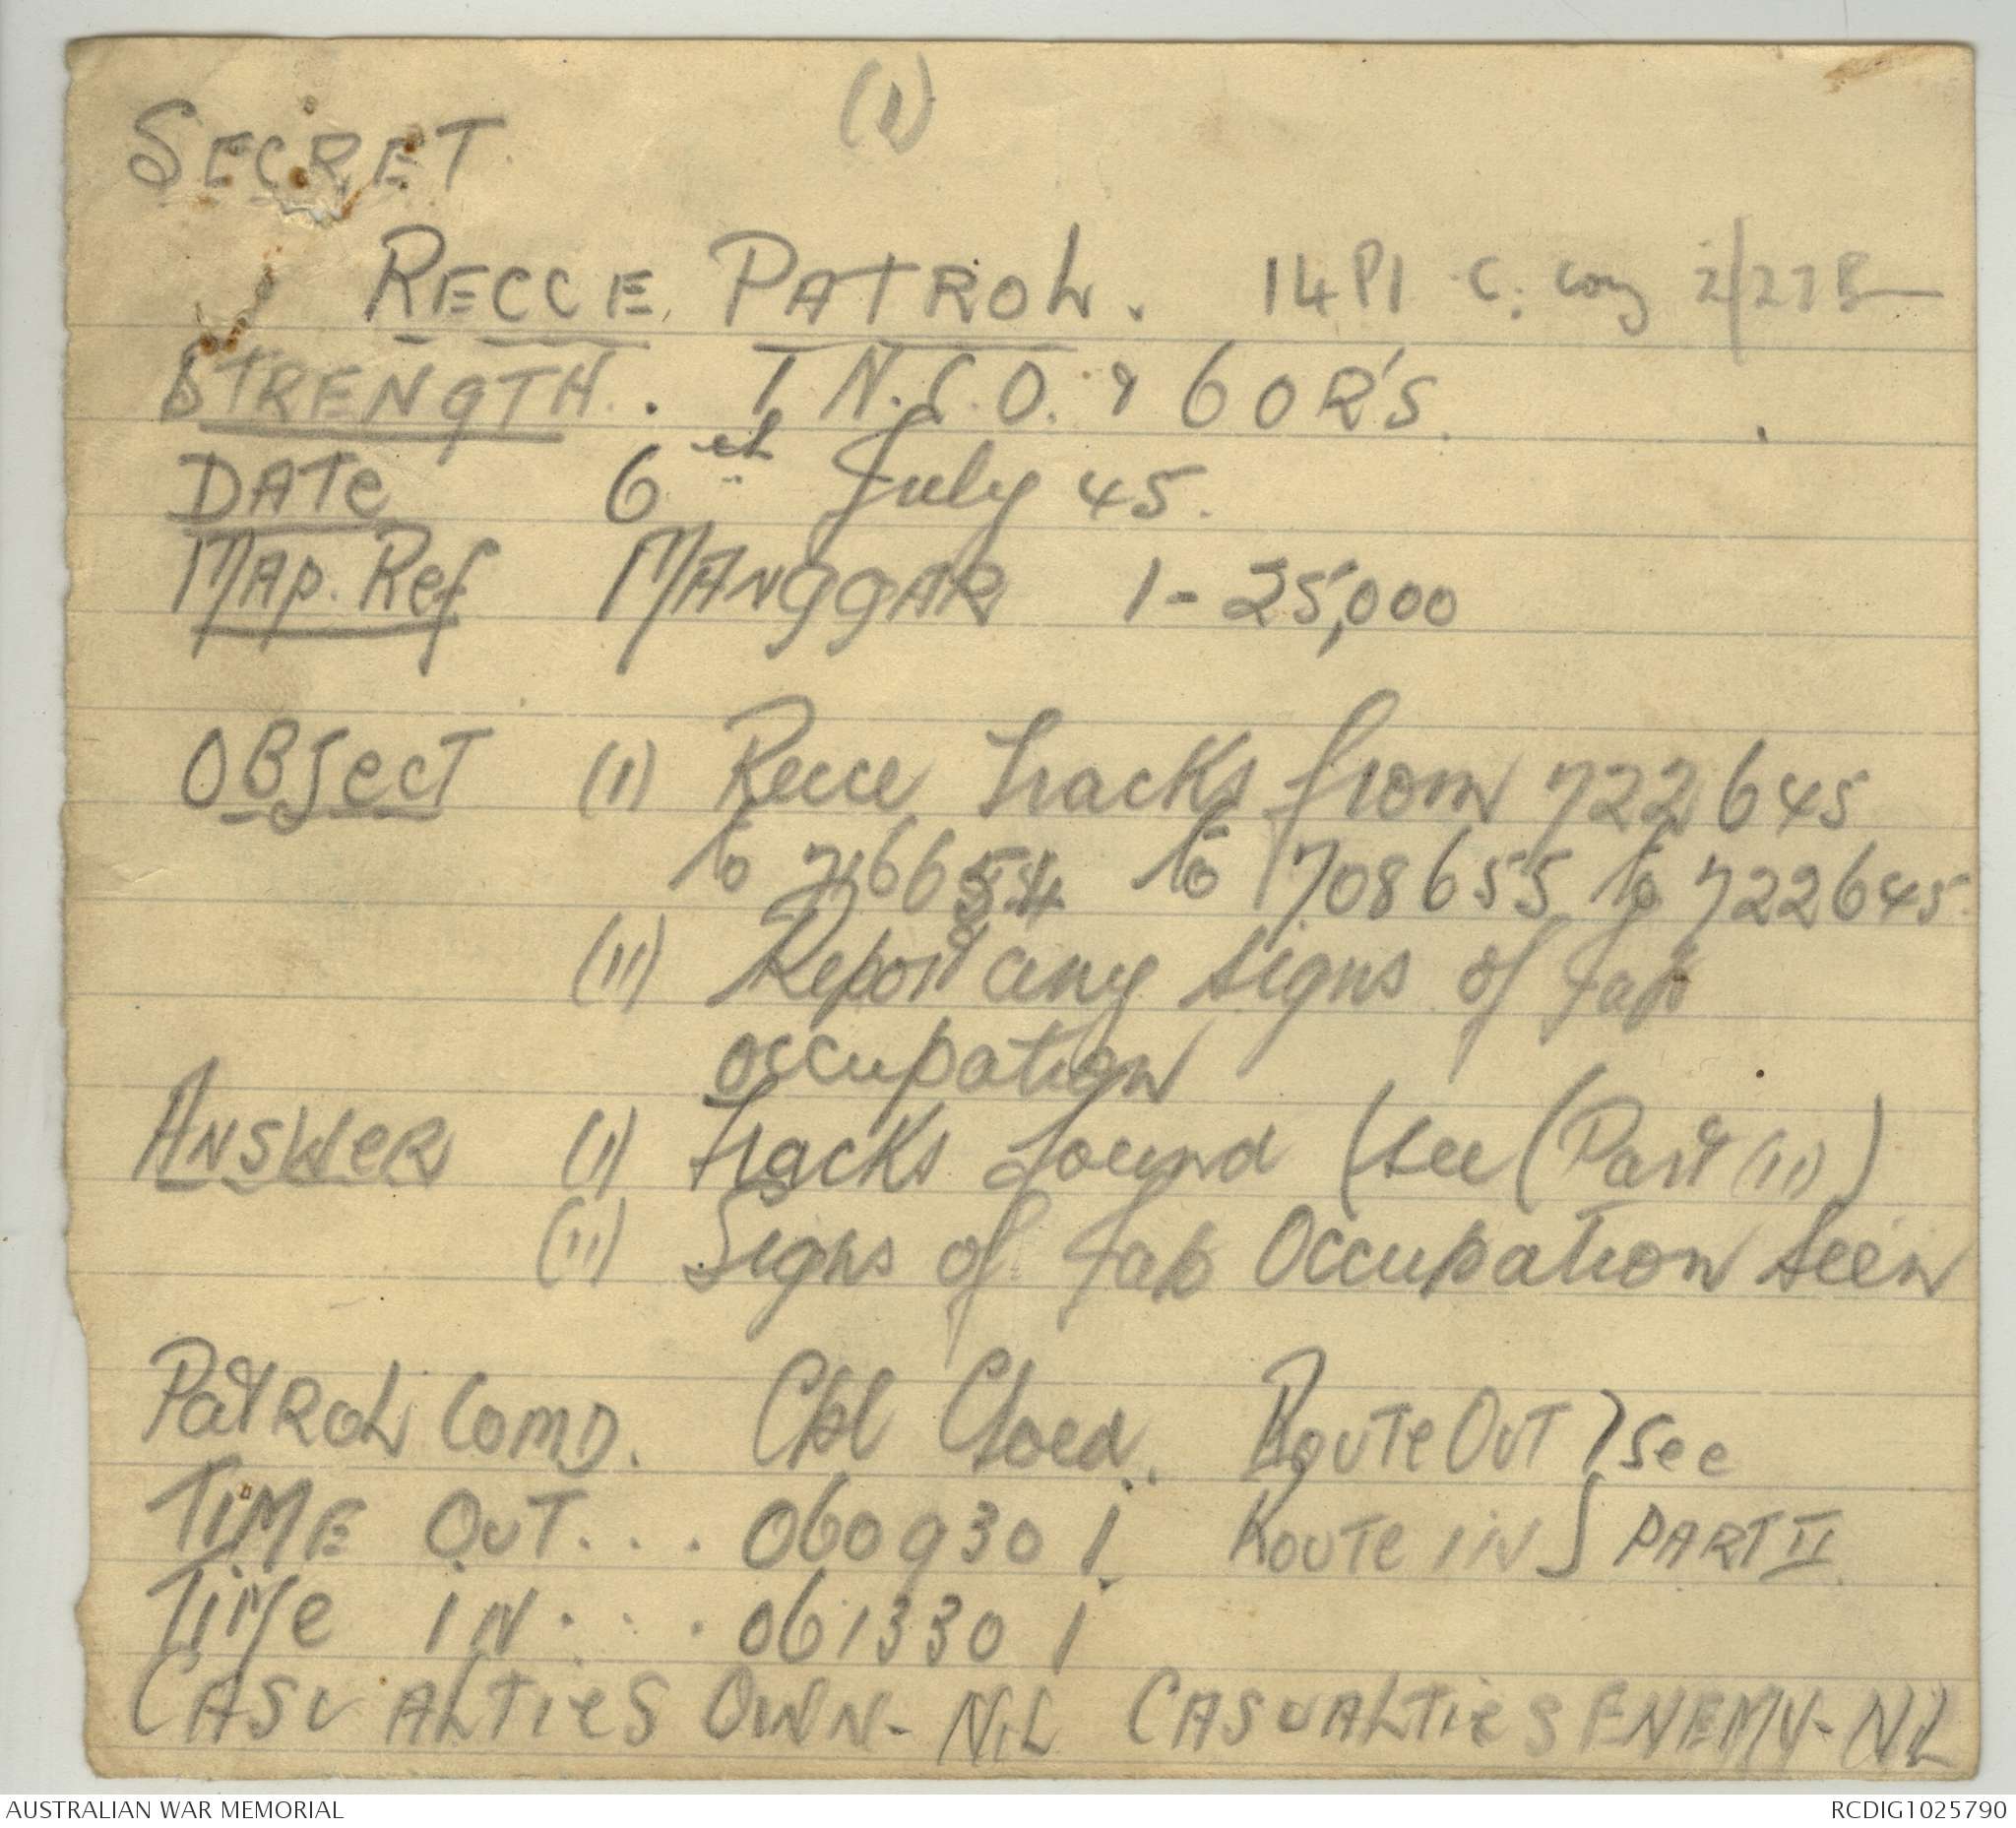 (1)
SECRET
RECCE PATROL. 14 Pl C. Coy 2/27 Bn
STRENGTH. 1 N.C.O. & 6 OR's.
DATe 6th July 45.
MAp. Ref MANggAR 1-25,000
OBJecT (I) Recce tracks from 722645
to 716654 to 708655 to 722645.
(II) Report any signs of Jap
occupation
ANSWeR (I) tracks found (see (Part (II)
(II) Signs of Jap Occupation seen
PatROL COMD. Cpl RouTe OuT } see
TIME OuT... 060930 I RouTe IN } PART II
TIMe IN... 061330 I
CASUALTieS OWN- NiL CASUALTieS ENEMY- NiL
AUSTRALIAN WAR MEMORIAL RCDIG1025790